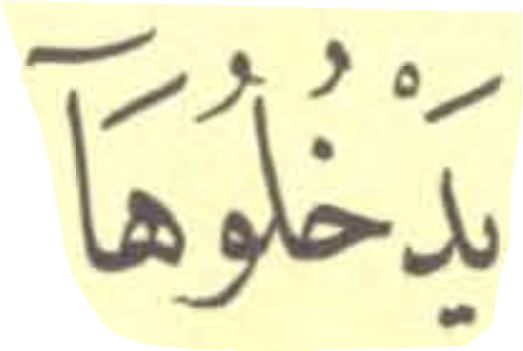 يَدْخُلُوهَآ